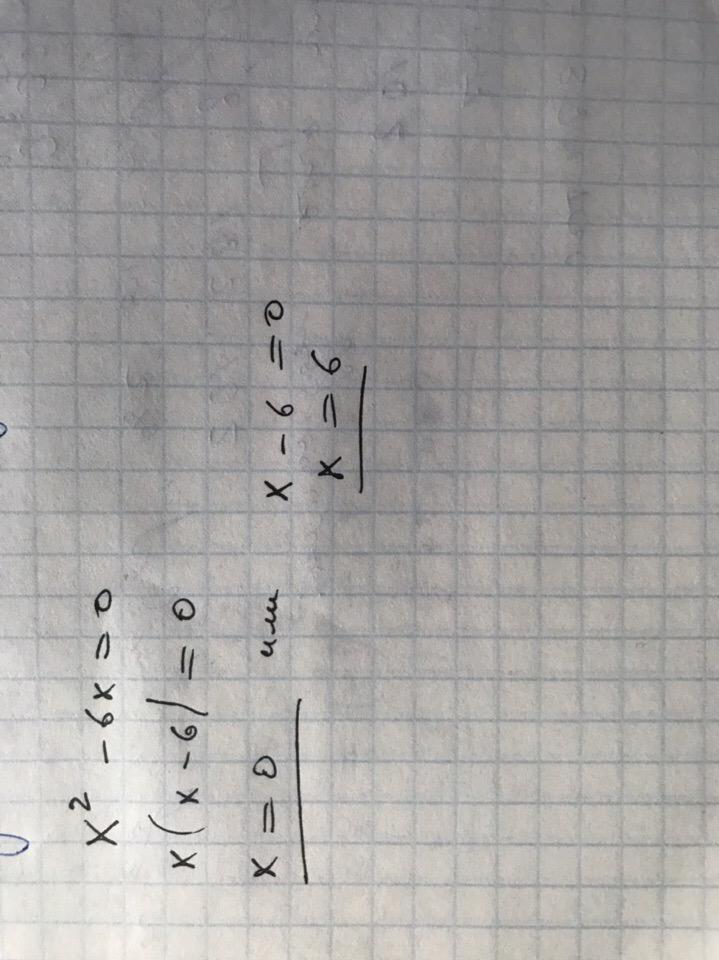 x² - 6x = 0
x(x - 6) = 0
x = 0 или x - 6 = 0
x = 6